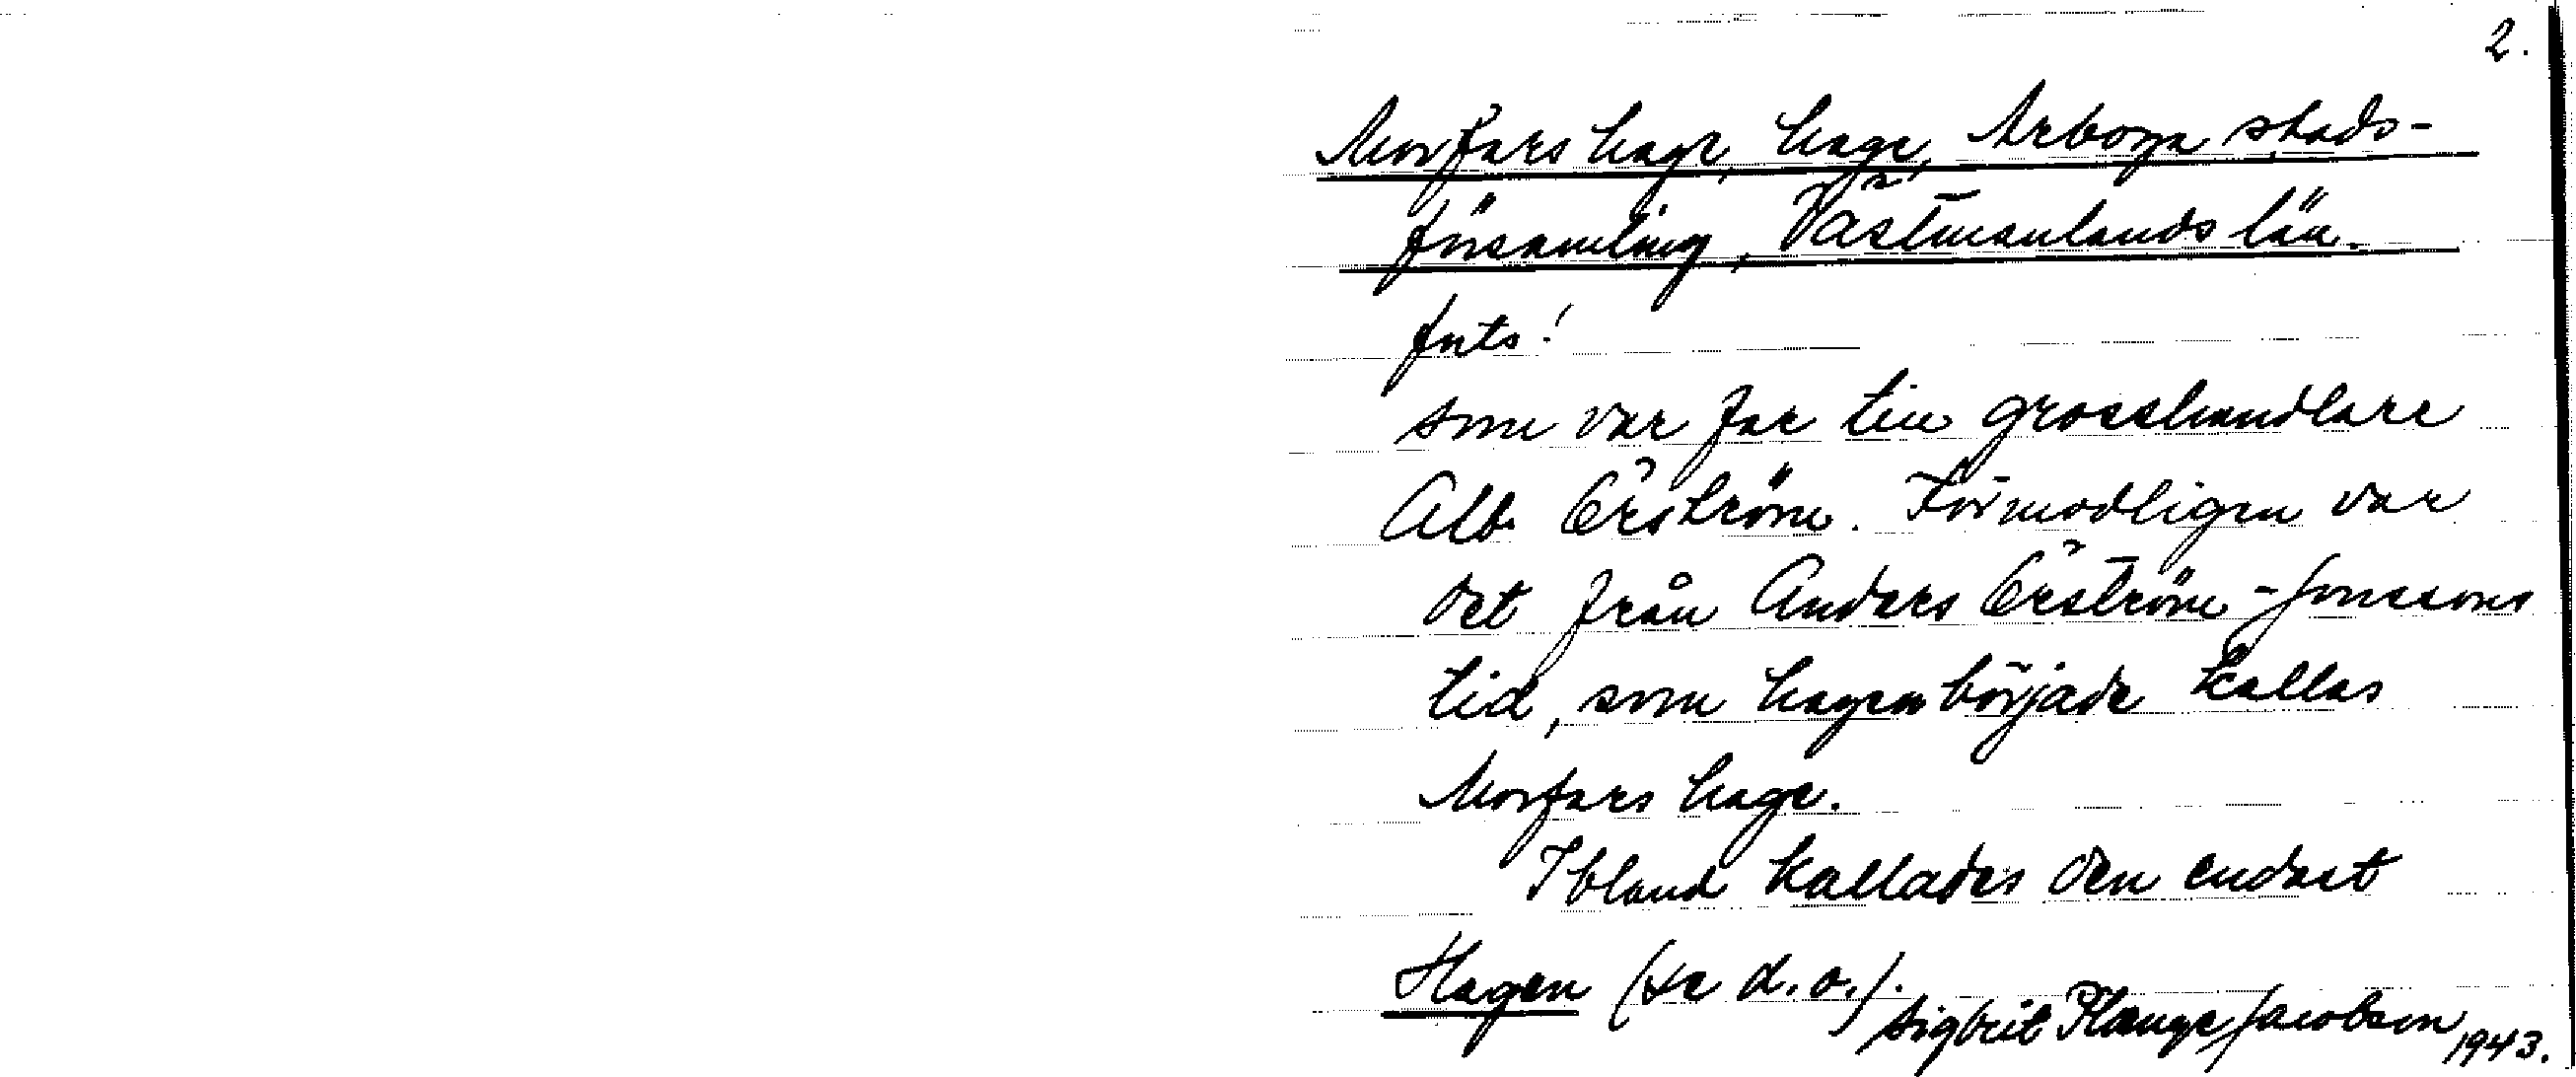 2.
Morfars hage, hage, Arboga stads-
församling, Västmanlands län.
forts!
som var far till grosshandlare
Alb. Örström. Förmodligen var
det från Anders Örström-Jonssons
tid, som hagen började kallas
Morfars hage.
Ibland kallades den endast
Hagen (se d.o.).
Sigbrit Plænge Jacobson
1943.